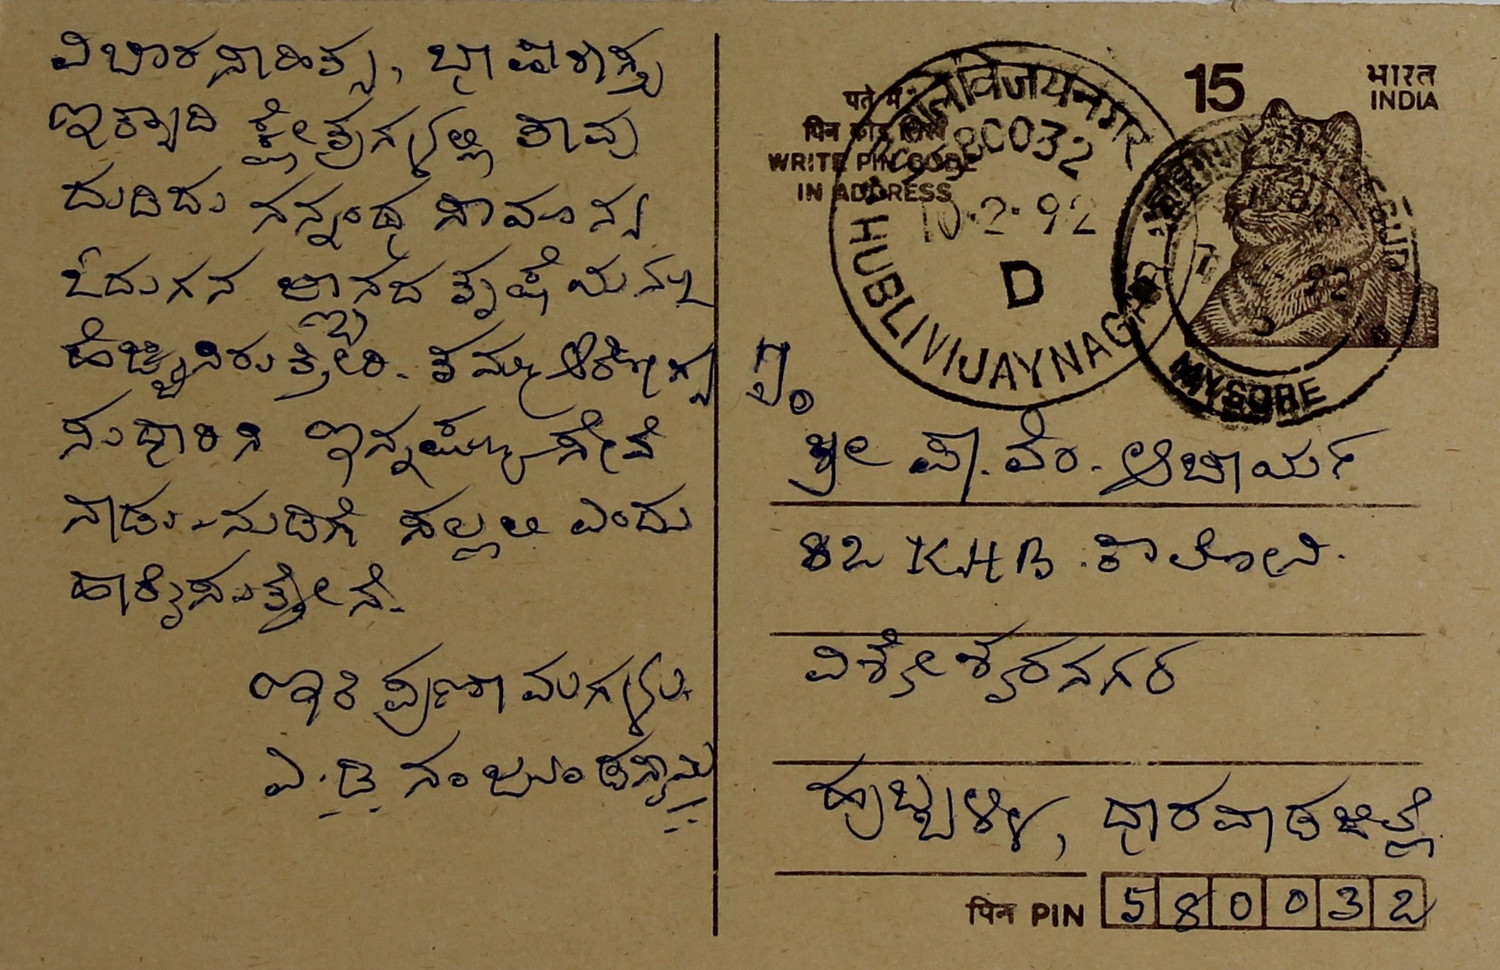 ವಿಚಾರಸಾಹಿತ್ಯ, ಭಾಷಾಶಾಸ್ತ್ರ
ಇತ್ಯಾದಿ ಕ್ಷೇತ್ರಗಳಲ್ಲಿ ತಾವು
ದುಡಿದು ನನ್ನಂಥ ಸಾಮಾನ್ಯ
ಓದುಗನ ಜ್ಞಾನದ ತೃಷೆಯನ್ನು
ಹೆಚ್ಚಿಸಿರುತ್ತೀರಿ. ತಮ್ಮ ಆರೋಗ್ಯ
ಸುಧಾರಿಸಿ ಇನ್ನಷ್ಟು ಸೇವೆ
ನಾಡು-ನುಡಿಗೆ ಸಲ್ಲಲಿ ಎಂದು
ಹಾರೈಸುತ್ತೇನೆ.
ಇತಿ ಪ್ರಣಾಮಗಳು.
ಎ.ಡಿ. ನಂಜುಂಡಸ್ವಾಮಿ
पते में
पिन कोड
WRITE PIN CODE
IN ADDRESS
580032
10·2·92
D
HUBLI VIJAYNAGAR
15
भारत
INDIA
MYSORE
ಶ್ರೀ ಪಾ. ವೆಂ. ಆಚಾರ್ಯ
82 KHB ಕಾಲೋನಿ.
ವಿಶ್ವೇಶ್ವರನಗರ
ಹುಬ್ಬಳ್ಳಿ, ಧಾರವಾಡ ಜಿಲ್ಲೆ
पिन PIN 580032